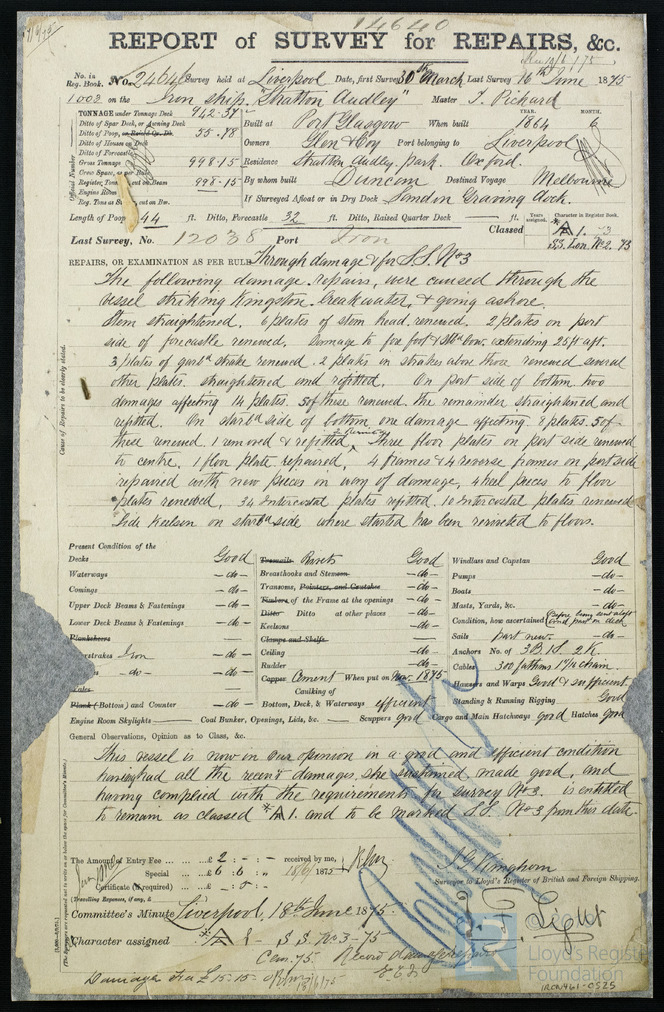 14640
REPORT of SURVEY for REPAIRS, &c.
No. in Reg. Book. No. 24646 Survey held at Liverpool Date, first Survey 30th March Last Survey 16th June 1875
1002 on the Iron ship "Stratton Audley" Master T. Pichard
TONNAGE under Tonnage Deck 942.37
Ditto of Spar Deck, or Awning Deck
Ditto of Poop, or Raised Qr. Dk. 55.78
Ditto of House on Deck
Ditto of Forecastle
Gross Tonnage 998.15
Crew Space, as per Rule
Register Tonnage cut on Beam 998.15
Engine Room
Reg. Tons as cut on Bm.
Built at Port Glasgow When built YEAR. 1864 MONTH. 6
Owners Glen & Coy Port belonging to Liverpool
Residence Stratton Audley park. Oxford.
By whom built Duncan Destined Voyage Melbourne
If Surveyed Afloat or in Dry Dock London Graving dock.
Length of Poop 44 ft. Ditto, Forecastle 32 ft. Ditto, Raised Quarter Deck — ft. Classed Years assigned. Character in Register Book. A 1. 73
Last Survey, No. 12038 Port Iron S.S. Lon. No 2. 73
REPAIRS, OR EXAMINATION AS PER RULE Through damage & for S.S. No 3
The following damage repairs, were caused through the
vessel striking Kingston breakwater & going ashore.
Stem straightened. 6 plates of stem head renewed. 2 plates on port
side of forecastle renewed. Damage to fore foot & stbd bow. extending 25 ft aft.
3 plates of garbd strake renewed 2 plates on strakes above those renewed several
other plates. straightened and refitted. On port side of bottom two
damages affecting 14 plates. 5 of these renewed the remainder straightened and
refitted. On starbd side of bottom one damage affecting 8 plates. 5 of
these renewed 1 removed & refitted Three floor plates on port side renewed
to centre. 1 floor plate repaired, 4 frames & 4 reverse frames on port side
repaired with new pieces in way of damage, 4 heel pieces to floor
plates renewed, 34 Intercostal plates refitted. 10 Intercostal plates renewed
Side Keelson on starbd side where started has been reriveted to floors.
Cause of Repairs to be clearly stated.
Present Condition of the
Decks Good
Waterways – do –
Comings – do –
Upper Deck Beams & Fastenings – do –
Lower Deck Beams & Fastenings – do –
Planksheers —
Iron – do –
– do – – do –
Plank (Bottom) and Counter – do –
Treenails Rivets Good
Breasthooks and Stemson – do –
Transoms, Pointers, and Crutches – do –
Timbers of the Frame at the openings – do –
Ditto Ditto at other places – do –
Keelsons – do –
Clamps and Shelfs —
Ceiling – do –
Rudder – do –
Copper Cement When put on Nov. 1875
Caulking of
Bottom, Deck, & Waterways efficient
Windlass and Capstan Good
Pumps – do –
Boats – do –
Masts, Yards, &c. – do –
Condition, how ascertained
Sails part new. – do –
Anchors No. of 3 B. 1 S. 2 K.
Cables 300 fathoms chain.
Hawsers and Warps Good & sufficient
Standing & Running Rigging Good
Engine Room Skylights — Coal Bunker, Openings, Lids, &c. — Scuppers good Cargo and Main Hatchways good Hatches good
General Observations, Opinion as to Class, &c.
This vessel is now in our opinion in a good and efficient condition
having had all the recent damages. she sustained made good, and
having complied with the requirements for survey No 3. is entitled
to remain as classed A 1. and to be marked S.S. No 3 from this date.
The Amount of Entry Fee ... ... £ 2 : – : – received by me,
Special ... ... £ 6 : 6 : „ 18/6/1875
Certificate (if required) ... – : 5 : –
(Travelling Expenses, if any, £
Surveyor to Lloyd's Register of British and Foreign Shipping.
Committee's Minute Liverpool, 18th June 1875.
Character assigned A 1 – S.S. No 3 – 75
Cem. 75. Record damage repairs
Light
Damage Fee £ 15-15-
Lloyd's Register
Foundation
IRON461-0525